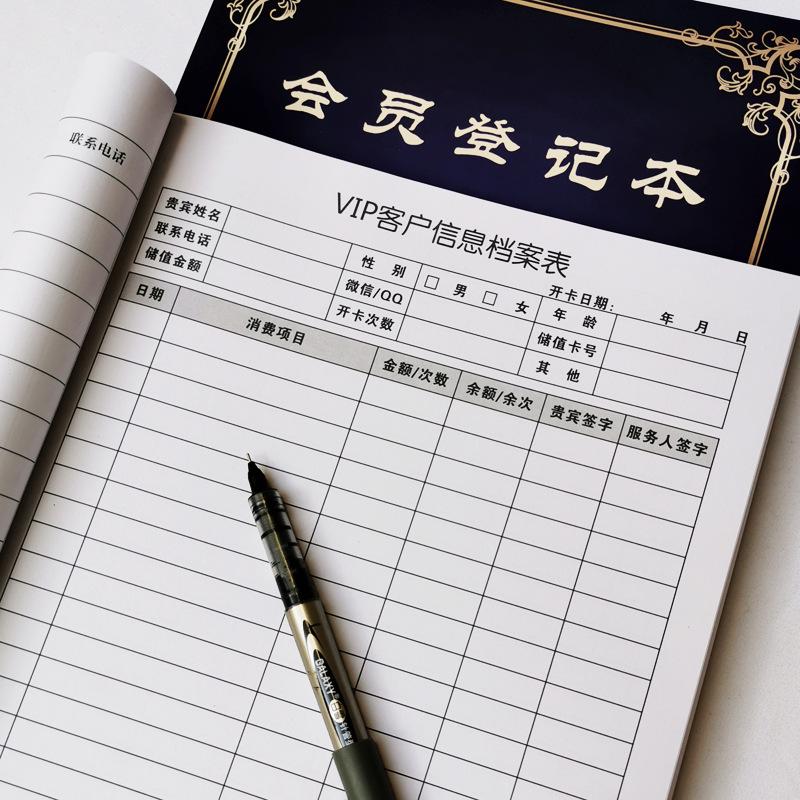 会员登记本
联系电话
VIP客户信息档案表
开卡日期: 年 月 日
贵宾姓名 性 别 □ 男 □ 女 年 龄
联系电话 微信/QQ 储值卡号
储值金额 开卡次数 其 他
日期 消费项目 金额/次数 余额/余次 贵宾签字 服务人签字
GALAXY